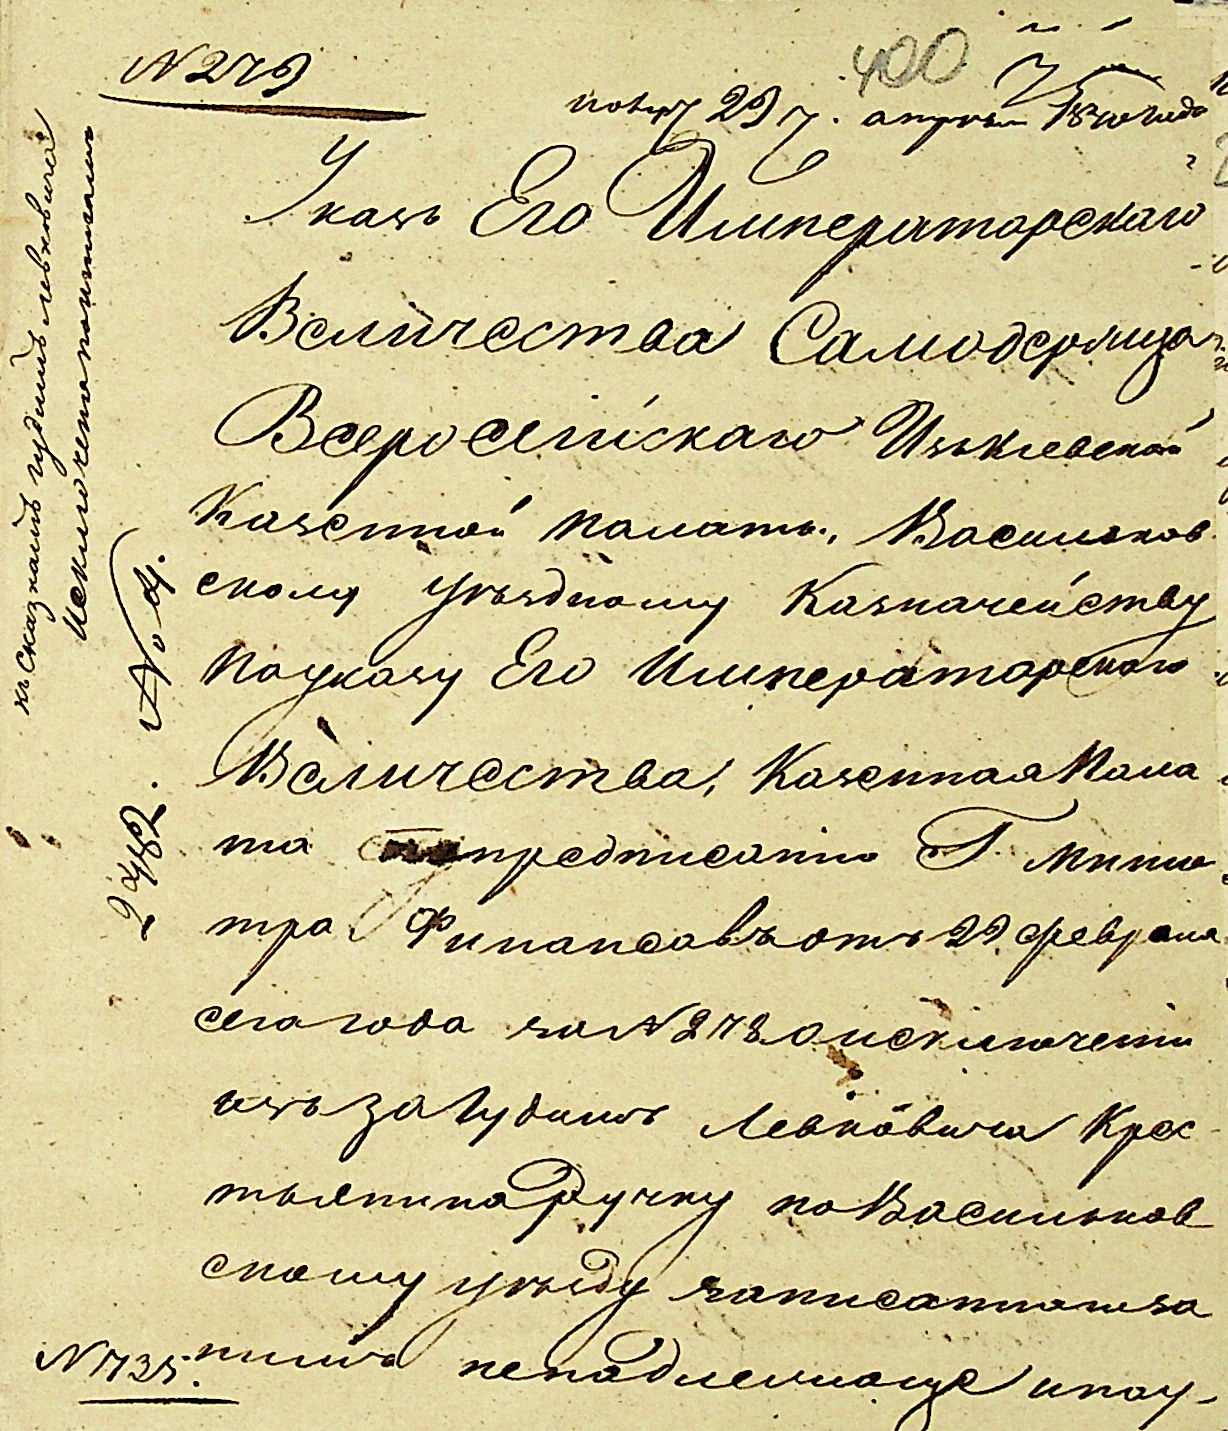 N 279
400
29 апреля 1840 года
Указъ Его Императорскаго
Величества Самодержца
Всеросейскаго Изъ Киевской
Казенной палаты, Васильков
скому уѣздному Казначейству
По указу Его Императорскаго
Величества, Казенная Пала
та предписанию Г. Минис
тра Финансавъ отъ 29 февраля
сего года за N 278 о исключении
изъ за Гудимъ Левковича Крес
тьянина Ручку по Васильков
скому уѣзду записаннаго за
нимъ ненадлежаще и по у-
N 735.
къ сказкамъ гудимъ левковича
Исключено